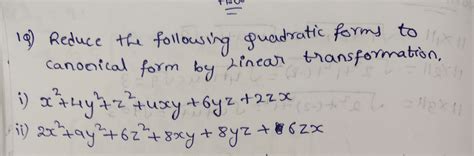 19) Reduce the following quadratic forms to
canonical form by Linear transformation.
i) x²+4y²+z²+4xy+6yz+2zx
ii) 2x²+9y²+6z²+8xy+8yz+6zx